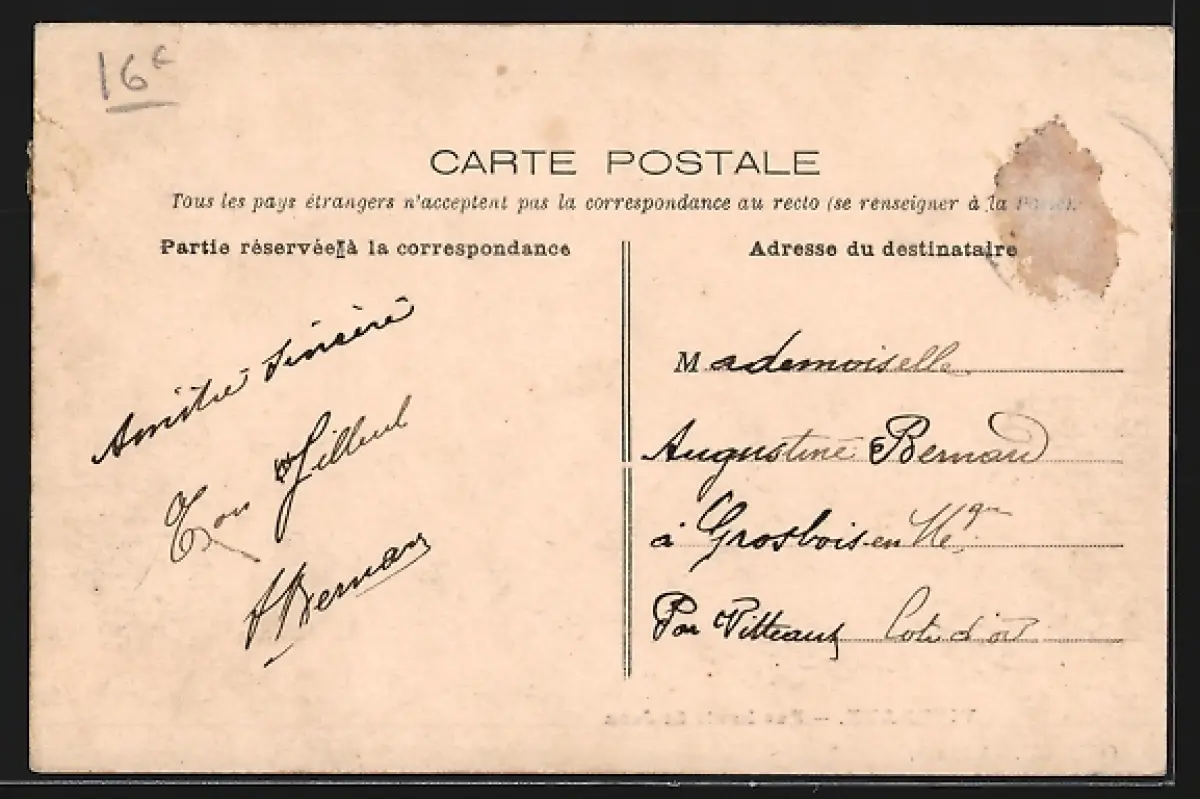 16c
CARTE POSTALE
Tous les pays étrangers n'acceptent pas la correspondance au recto (se renseigner à la
Partie réservée à la correspondance
Adresse du destinataire
Amitié sincère
Ton filleul
ABernard
Mademoiselle
Augustine Bernard
à Grosbois-en-Mgne
Par Vitteaux Cote d'or